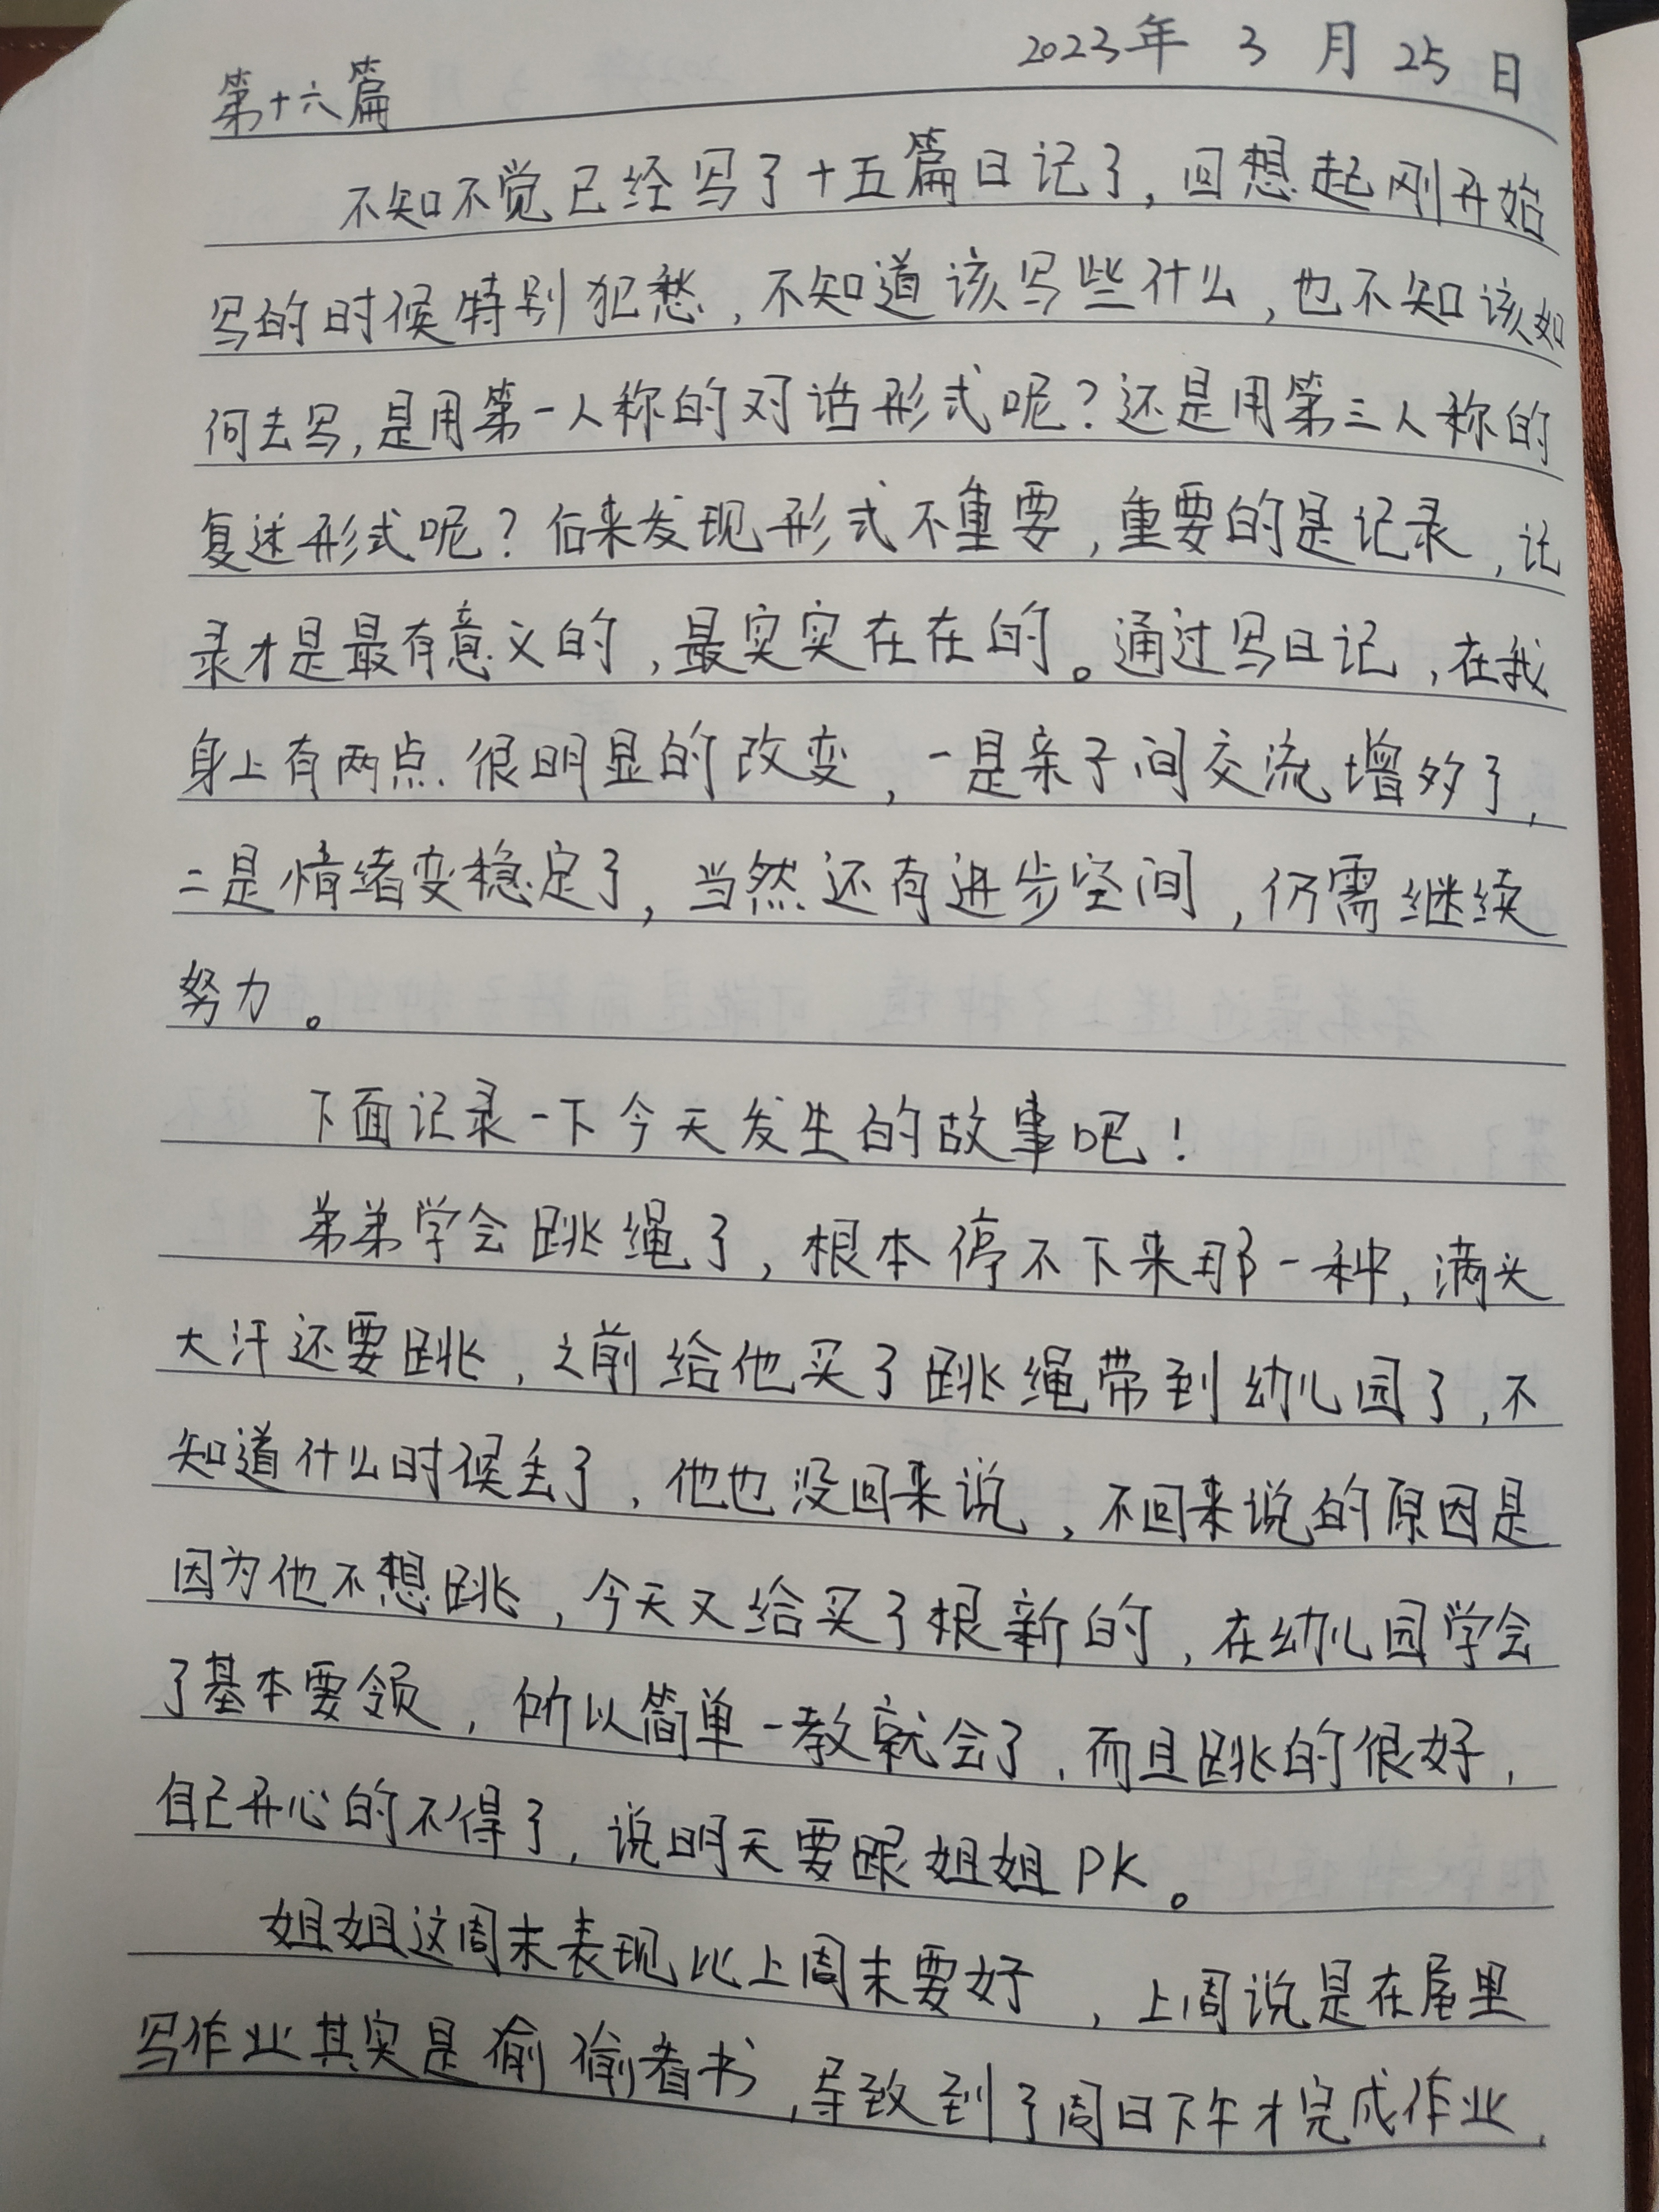 2023年 3 月 25 日
第十六篇
不知不觉已经写了十五篇日记了，回想起刚开始
写的时候特别犯愁，不知道该写些什么，也不知该如
何去写，是用第一人称的对话形式呢？还是用第三人称的
复述形式呢？后来发现形式不重要，重要的是记录，记
录才是最有意义的，最实实在在的。通过写日记，在我
身上有两点很明显的改变，一是亲子间交流增多了，
二是情绪变稳定了，当然还有进步空间，仍需继续
努力。
下面记录一下今天发生的故事吧！
弟弟学会跳绳了，根本停不下来那一种，满头
大汗还要跳，之前给他买了跳绳带到幼儿园了，不
知道什么时候丢了，他也没回来说，不回来说的原因是
因为他不想跳，今天又给买了根新的，在幼儿园学会
了基本要领，所以简单一教就会了，而且跳的很好，
自己开心的不得了，说明天要跟姐姐PK。
姐姐这周末表现比上周末要好，上周说是在屋里
写作业其实是偷偷看书，导致到了周日下午才完成作业，